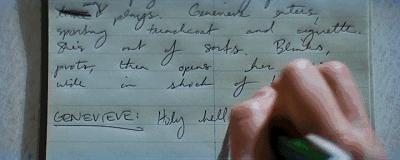 & plays. Genevieve enters,
sporting trenchcoat and cigarette.
She's out of sorts. Blinks,
pivots, then opens her
while in shock of
GENEVIEVE: Holy hell